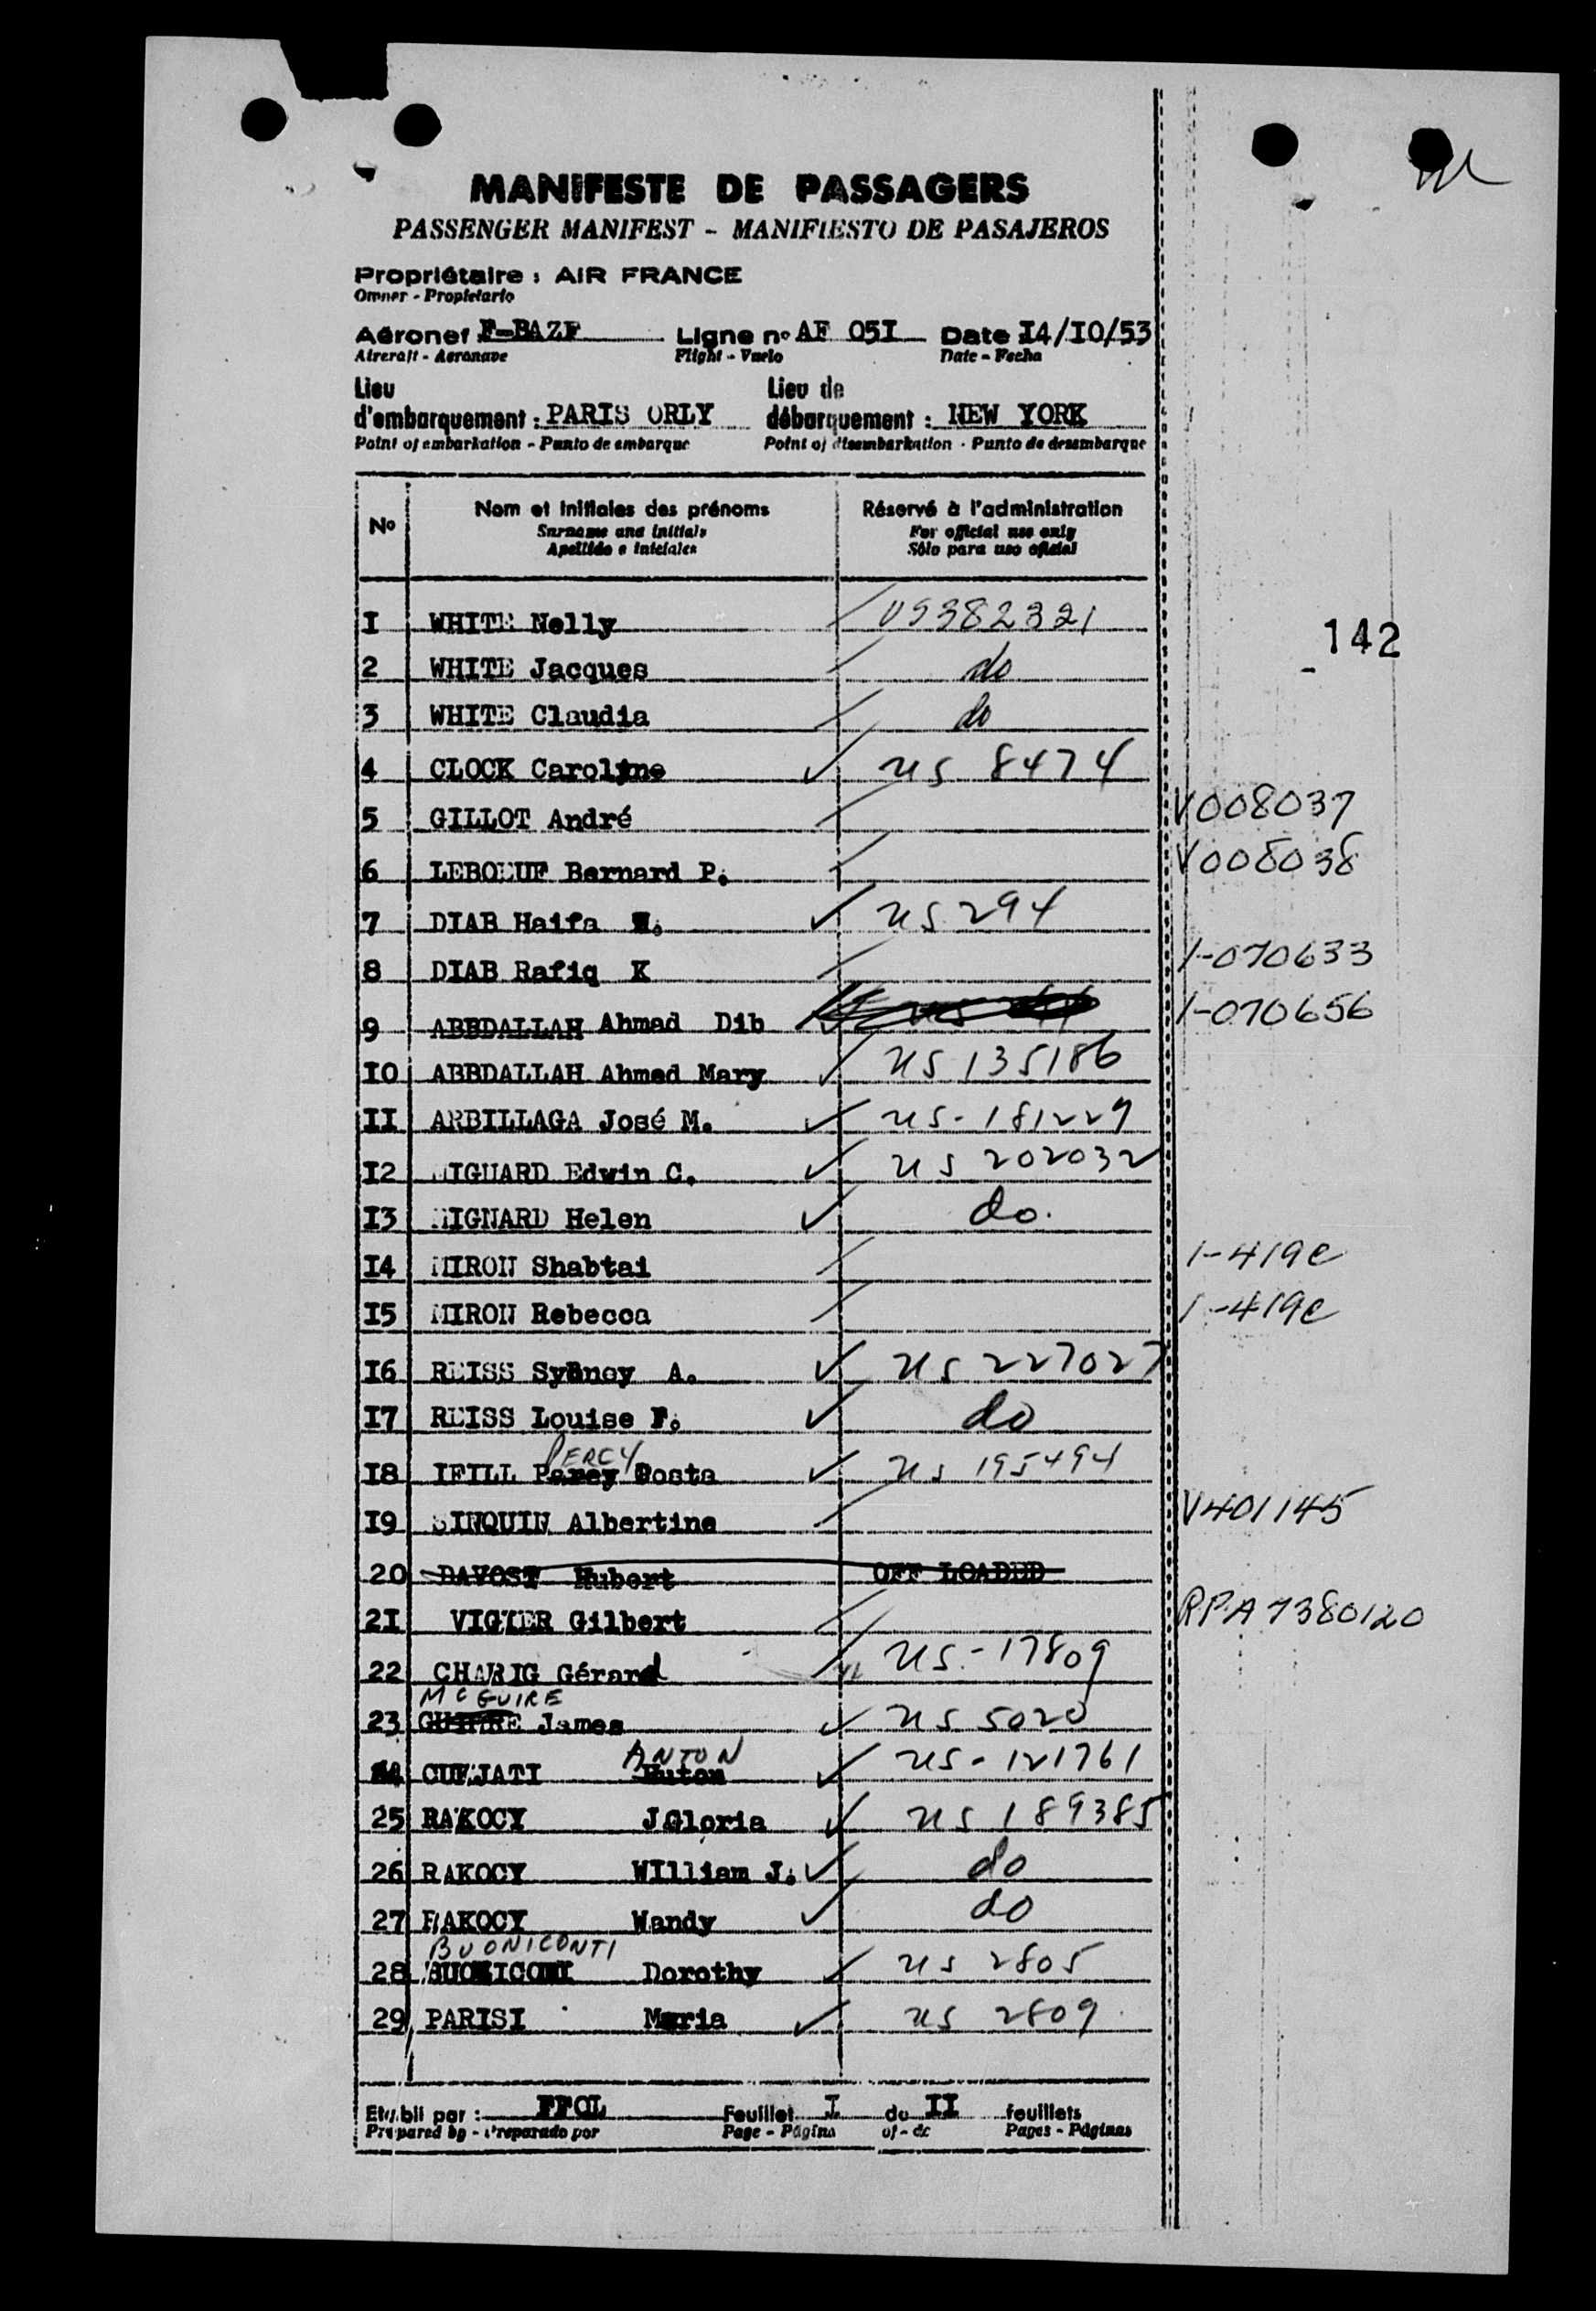 MANIFESTE DE PASSAGERS
PASSENGER MANIFEST - MANIFIESTO DE PASAJEROS
Propriétaire : AIR FRANCE
Owner - Propietario
Aéronef F-BAZF Ligne nº AF 05I Date I4/IO/53
Aircraft - Aeronave Flight - Vuelo Date - Fecha
Lieu Lieu de
d'embarquement : PARIS ORLY débarquement : NEW YORK
Point of embarkation - Punto de embarque Point of disembarkation - Punto de desembarque
Nº Nom et initiales des prénoms Réservé à l'administration
Surname and initials For official use only
Apellido e iniciales Sólo para uso oficial
I WHITE Nelly US382321
142
2 WHITE Jacques do
3 WHITE Claudia do
4 CLOCK Carolyne US 8474
5 GILLOT André V008037
6 LEBOEUF Bernard P. V008038
7 DIAB Haifa US 294
8 DIAB Rafiq K I-070633
9 ABBDALLAH Ahmad Dib I-070656
IO ABBDALLAH Ahmed Mary US 135186
II ARBILLAGA José M. US-181229
I2 MIGNARD Edwin C. US 202032
I3 MIGNARD Helen do.
I4 MIRON Shabtai I-419C
I5 MIRON Rebecca I-419C
I6 REISS Sydney A. US 227027
I7 REISS Louise F. do
PERCY
I8 IFILL Parey Costa US 195494
I9 SINQUIN Albertine V401145
20 DAVOST Hubert OFF LOADED
2I VIGIER Gilbert RPA 7380120
22 CHARIG Gérard US-17809
McGUIRE
23 James US 5020
ANTON
CUFJATI US-121761
25 RAKOCY J.Gloria US 189385
26 RAKOCY WIlliam J. do
27 RAKOCY Wandy do
BUONICONTI
28 Dorothy US 2805
29 PARISI Maria US 2809
Etabli par : FFOL Feuillet I de II feuillets
Prepared by - Preparado por Page - Página of - de Pages - Páginas